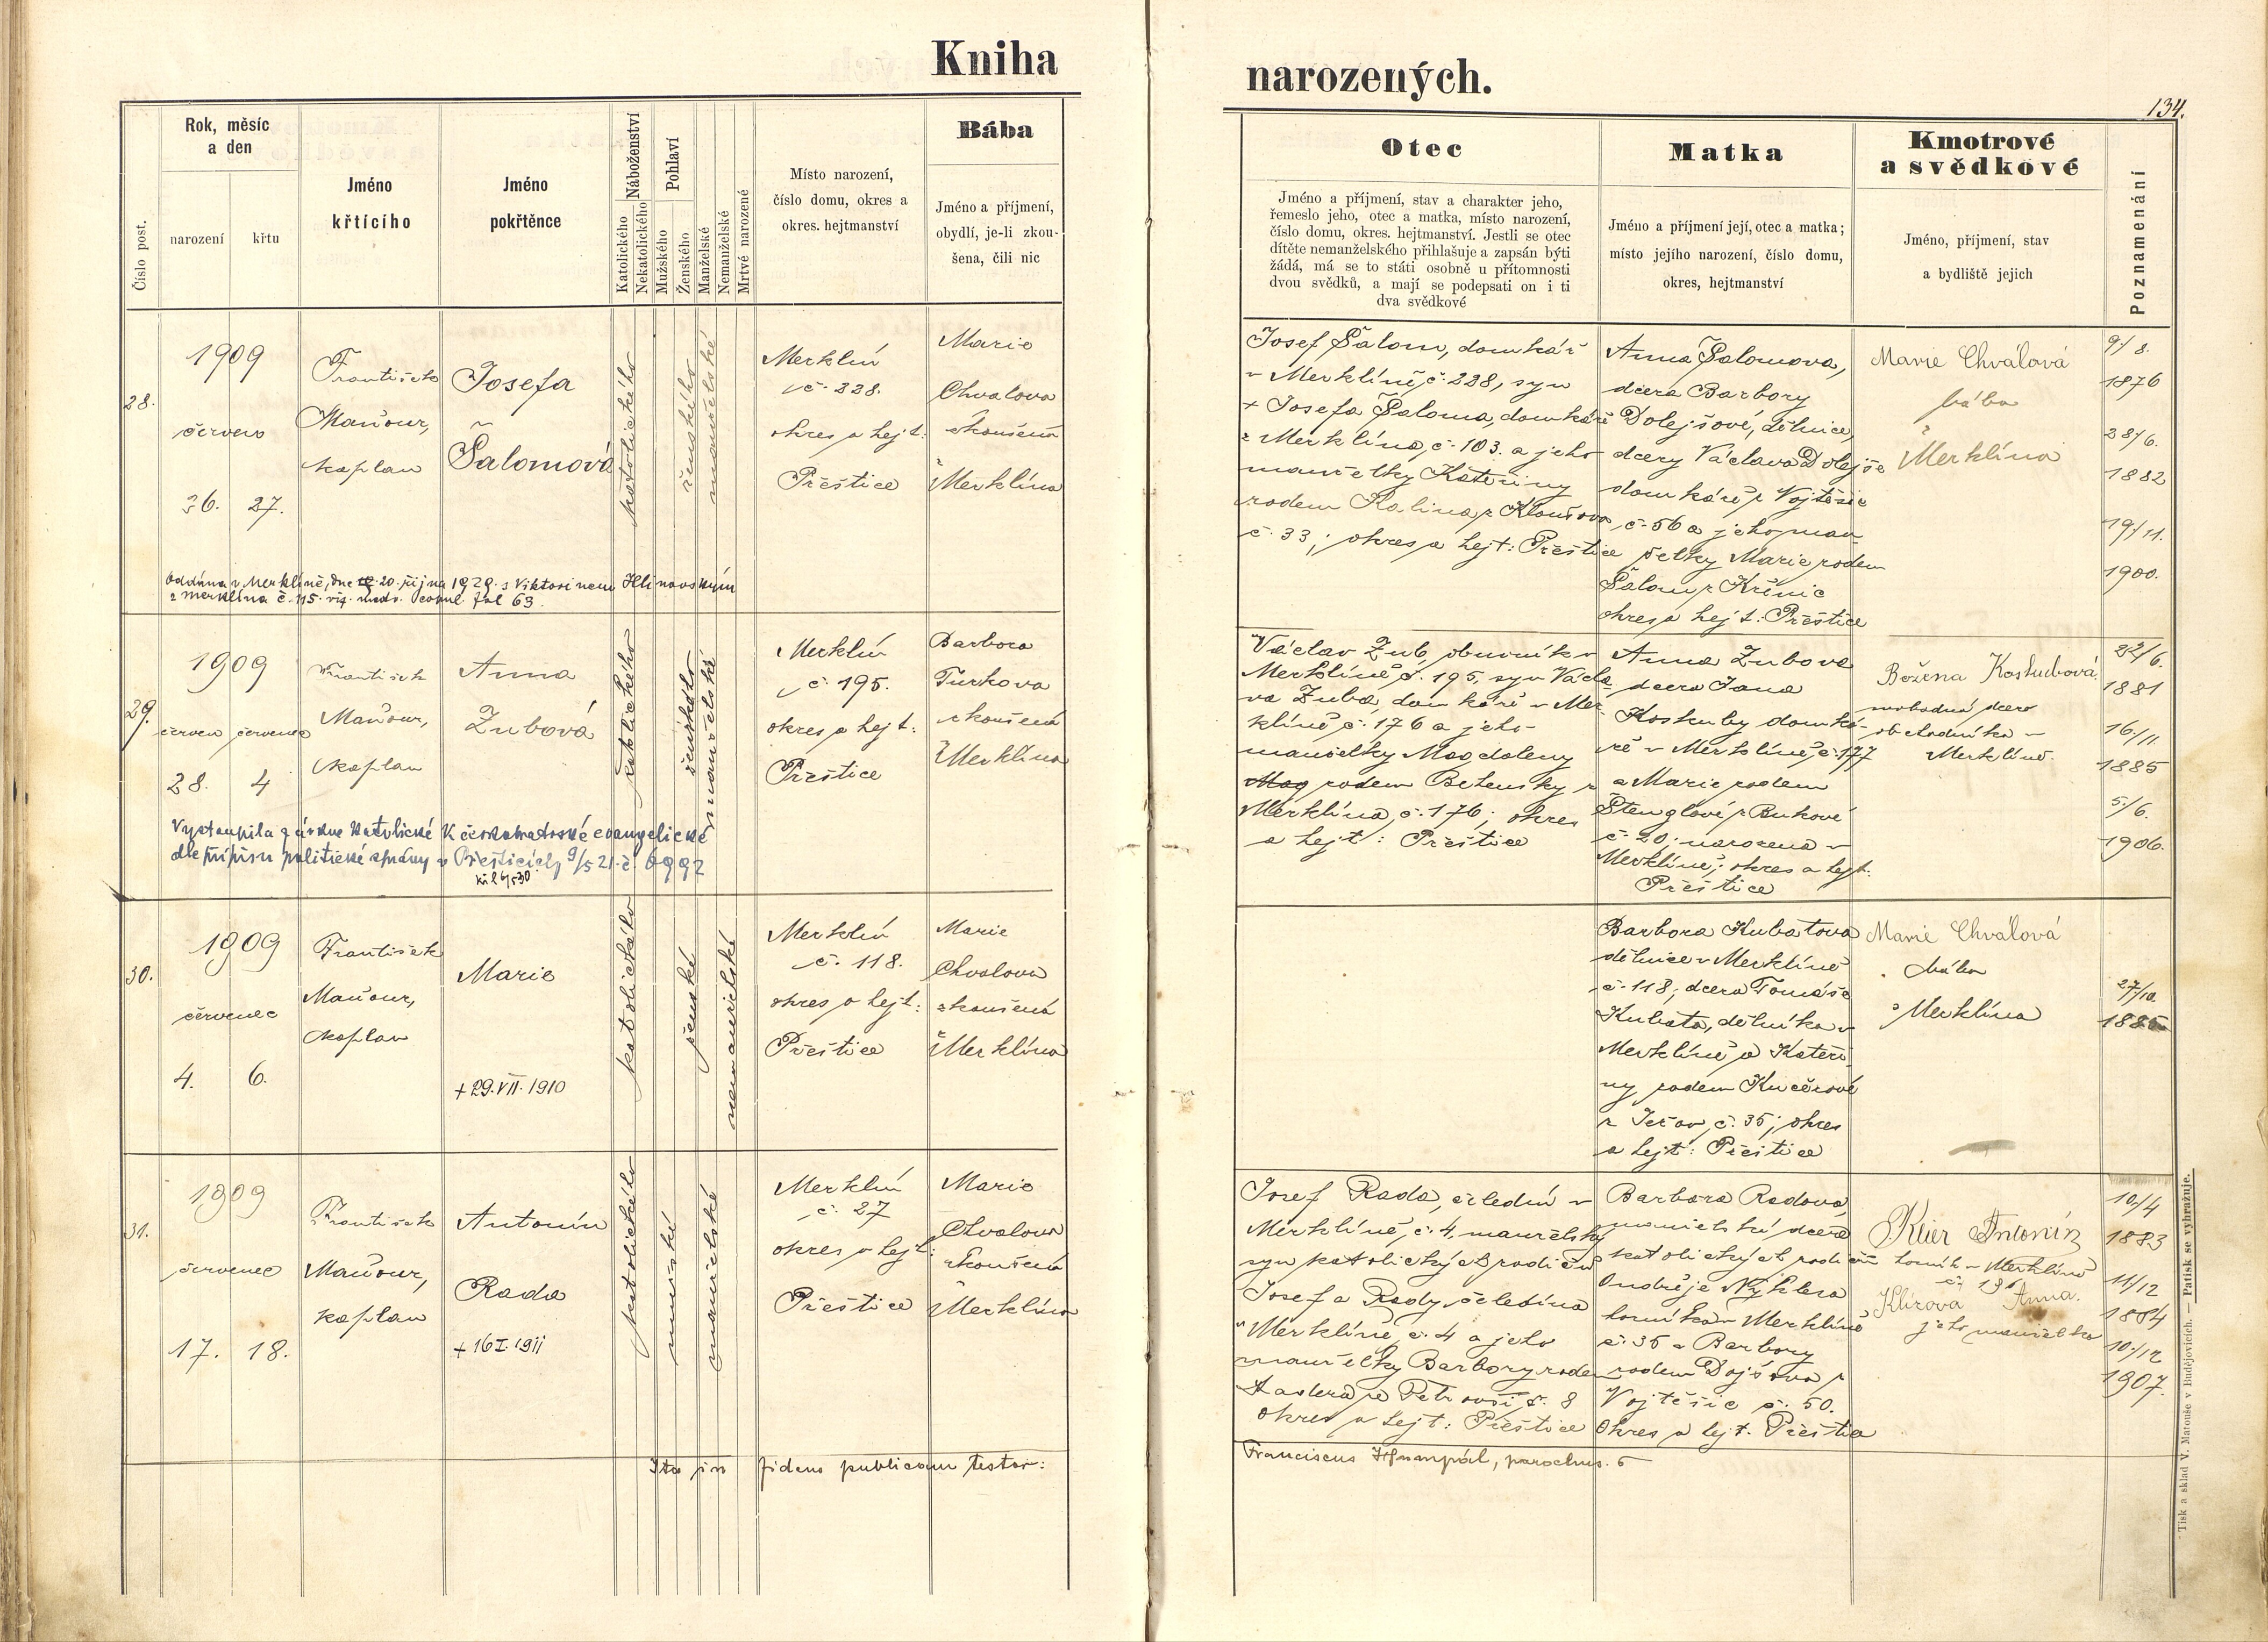 Kniha
narozených.
134.
Číslo post.
Rok, měsíc
a den
narození
křtu
Jméno
křtícího
Jméno
pokřtěnce
Náboženství
Katolického
Nekatolického
Pohlaví
Mužského
Ženského
Manželské
Nemanželské
Mrtvé narozené
Místo narození,
číslo domu, okres a
okres. hejtmanství
Bába
Jméno a příjmení,
obydlí, je-li zkou-
šena, čili nic
Otec
Jméno a příjmení, stav a charakter jeho,
řemeslo jeho, otec a matka, místo narození,
číslo domu, okres. hejtmanství. Jestli se otec
dítěte nemanželského přihlašuje a zapsán býti
žádá, má se to státi osobně u přítomnosti
dvou svědků, a mají se podepsati on i ti
dva svědkové
Matka
Jméno a příjmení její, otec a matka;
místo jejího narození, číslo domu,
okres, hejtmanství
Kmotrové
a svědkové
Jméno, příjmení, stav
a bydliště jejich
Poznamenání
28.
1909
červen
26. 27.
František
Maňour,
kaplan
Josefa
Šalomová
katolického
ženského
manželské
Merklín
č. 228.
okres a hejt:
Přeštice
Marie
Chvalova
zkoušená
z Merklína
Josef Šalom, domkář
v Merklíně č. 228, syn
+ Josefa Šaloma, domkáře
z Merklína č. 103. a jeho
manželky Kateřiny
rodem Kalina z
č. 33; okres a hejt: Přeštice
Anna Šalomova,
dcera Barbory
Dolejšové, dělnice,
dcery Václava Dolejše
domkáře z Vojtěšic
č. 56 a jeho man
želky Marie rodem
Šalom z Křenic
okres a hejt: Přeštice
Marie Chválová
bába
z Merklína
9/8.
1876
28/6.
1882
19/11.
1900.
Oddána v Merklíně, dne 20. října 1929. s Viktorinem Hlinovským
z Merklína č. 115. fol 63.
29.
1909
červen červenec
28. 4
František
Maňour,
kaplan
Anna
Zubová
katolického
ženského
manželské
Merklín
č. 195.
okres a hejt:
Přeštice
Barbora
Turkova
zkoušená
z Merklína
Václav Zub, obuvník v
Merklíně č. 195, syn Václa
va Zuba, domkáře v Mer
klíně č. 176 a jeho
manželky Magdaleny
rodem Betensky z
Merklína, č. 176; okres
a hejt: Přeštice
Anna Zubova
dcera Jana
Kostuby domká-
ře v Merklíně č. 177
a Marie rodem
Štenglové z Bukové
č. 20; narozena v
Merklíně; okres a hejt:
Přeštice
Božena Kostubová
svobodná dcera
obchodníka v
Merklíně.
22/6.
1881
16./11.
1885
5./6.
1906.
Vystoupila z církve katolické k českobratrské evangelické
dle přípisu politické správy v Přešticích 9/5 21. č. 6992
30.
1909
červenec
4. 6.
František
Maňour,
kaplan
Marie
+ 29. VII. 1910
katolického
ženské
nemanželské
Merklín
č. 118.
okres a hejt:
Přeštice
Marie
Chvalova
zkoušená
z Merklína
Barbora Kubatova
dělnice v Merklíně
č. 118; dcera Tomáše
Kubata, dělníka v
Merklíně a Kateři
ny rodem Kučerové
z Ježov, č. 35; okres
a hejt: Přeštice
Marie Chválová
bába
z Merklína
27/10.
1885
31.
1909
červenec
17. 18.
František
Maňour,
kaplan
Antonín
Rada
+ 16 I. 1911
katolického
mužské
manželské
Merklín
č. 27
okres a hejt:
Přeštice
Marie
Chvalova
zkoušená
z Merklína
Josef Rada, čeledín v
Merklíně, č. 4, manželský
syn katolických rodičů
Josefa Rady, čeledína
v Merklíně č. 4 a jeho
manželky Barbory rodem
ze Petrovic č. 8
okres a hejt: Přeštice
Barbora Radova,
manželská dcera
katolických rodičů
Ondřeje Nyklesa
horníka v Merklíně
č. 35 a Barbory
rodem z
Vojtěšic č. 50.
Okres a hejt. Přeštice
Klier Antonín
horník v Merklíně
Klírová Anna.
jeho manželka
10./4
1883
11/12
1884
10./12
1907.
Ita in fidem publicam testor:
Franciscus parochus.
Tisk a sklad V. Matouše v Budějovicích. — Patisk se vyhražuje.